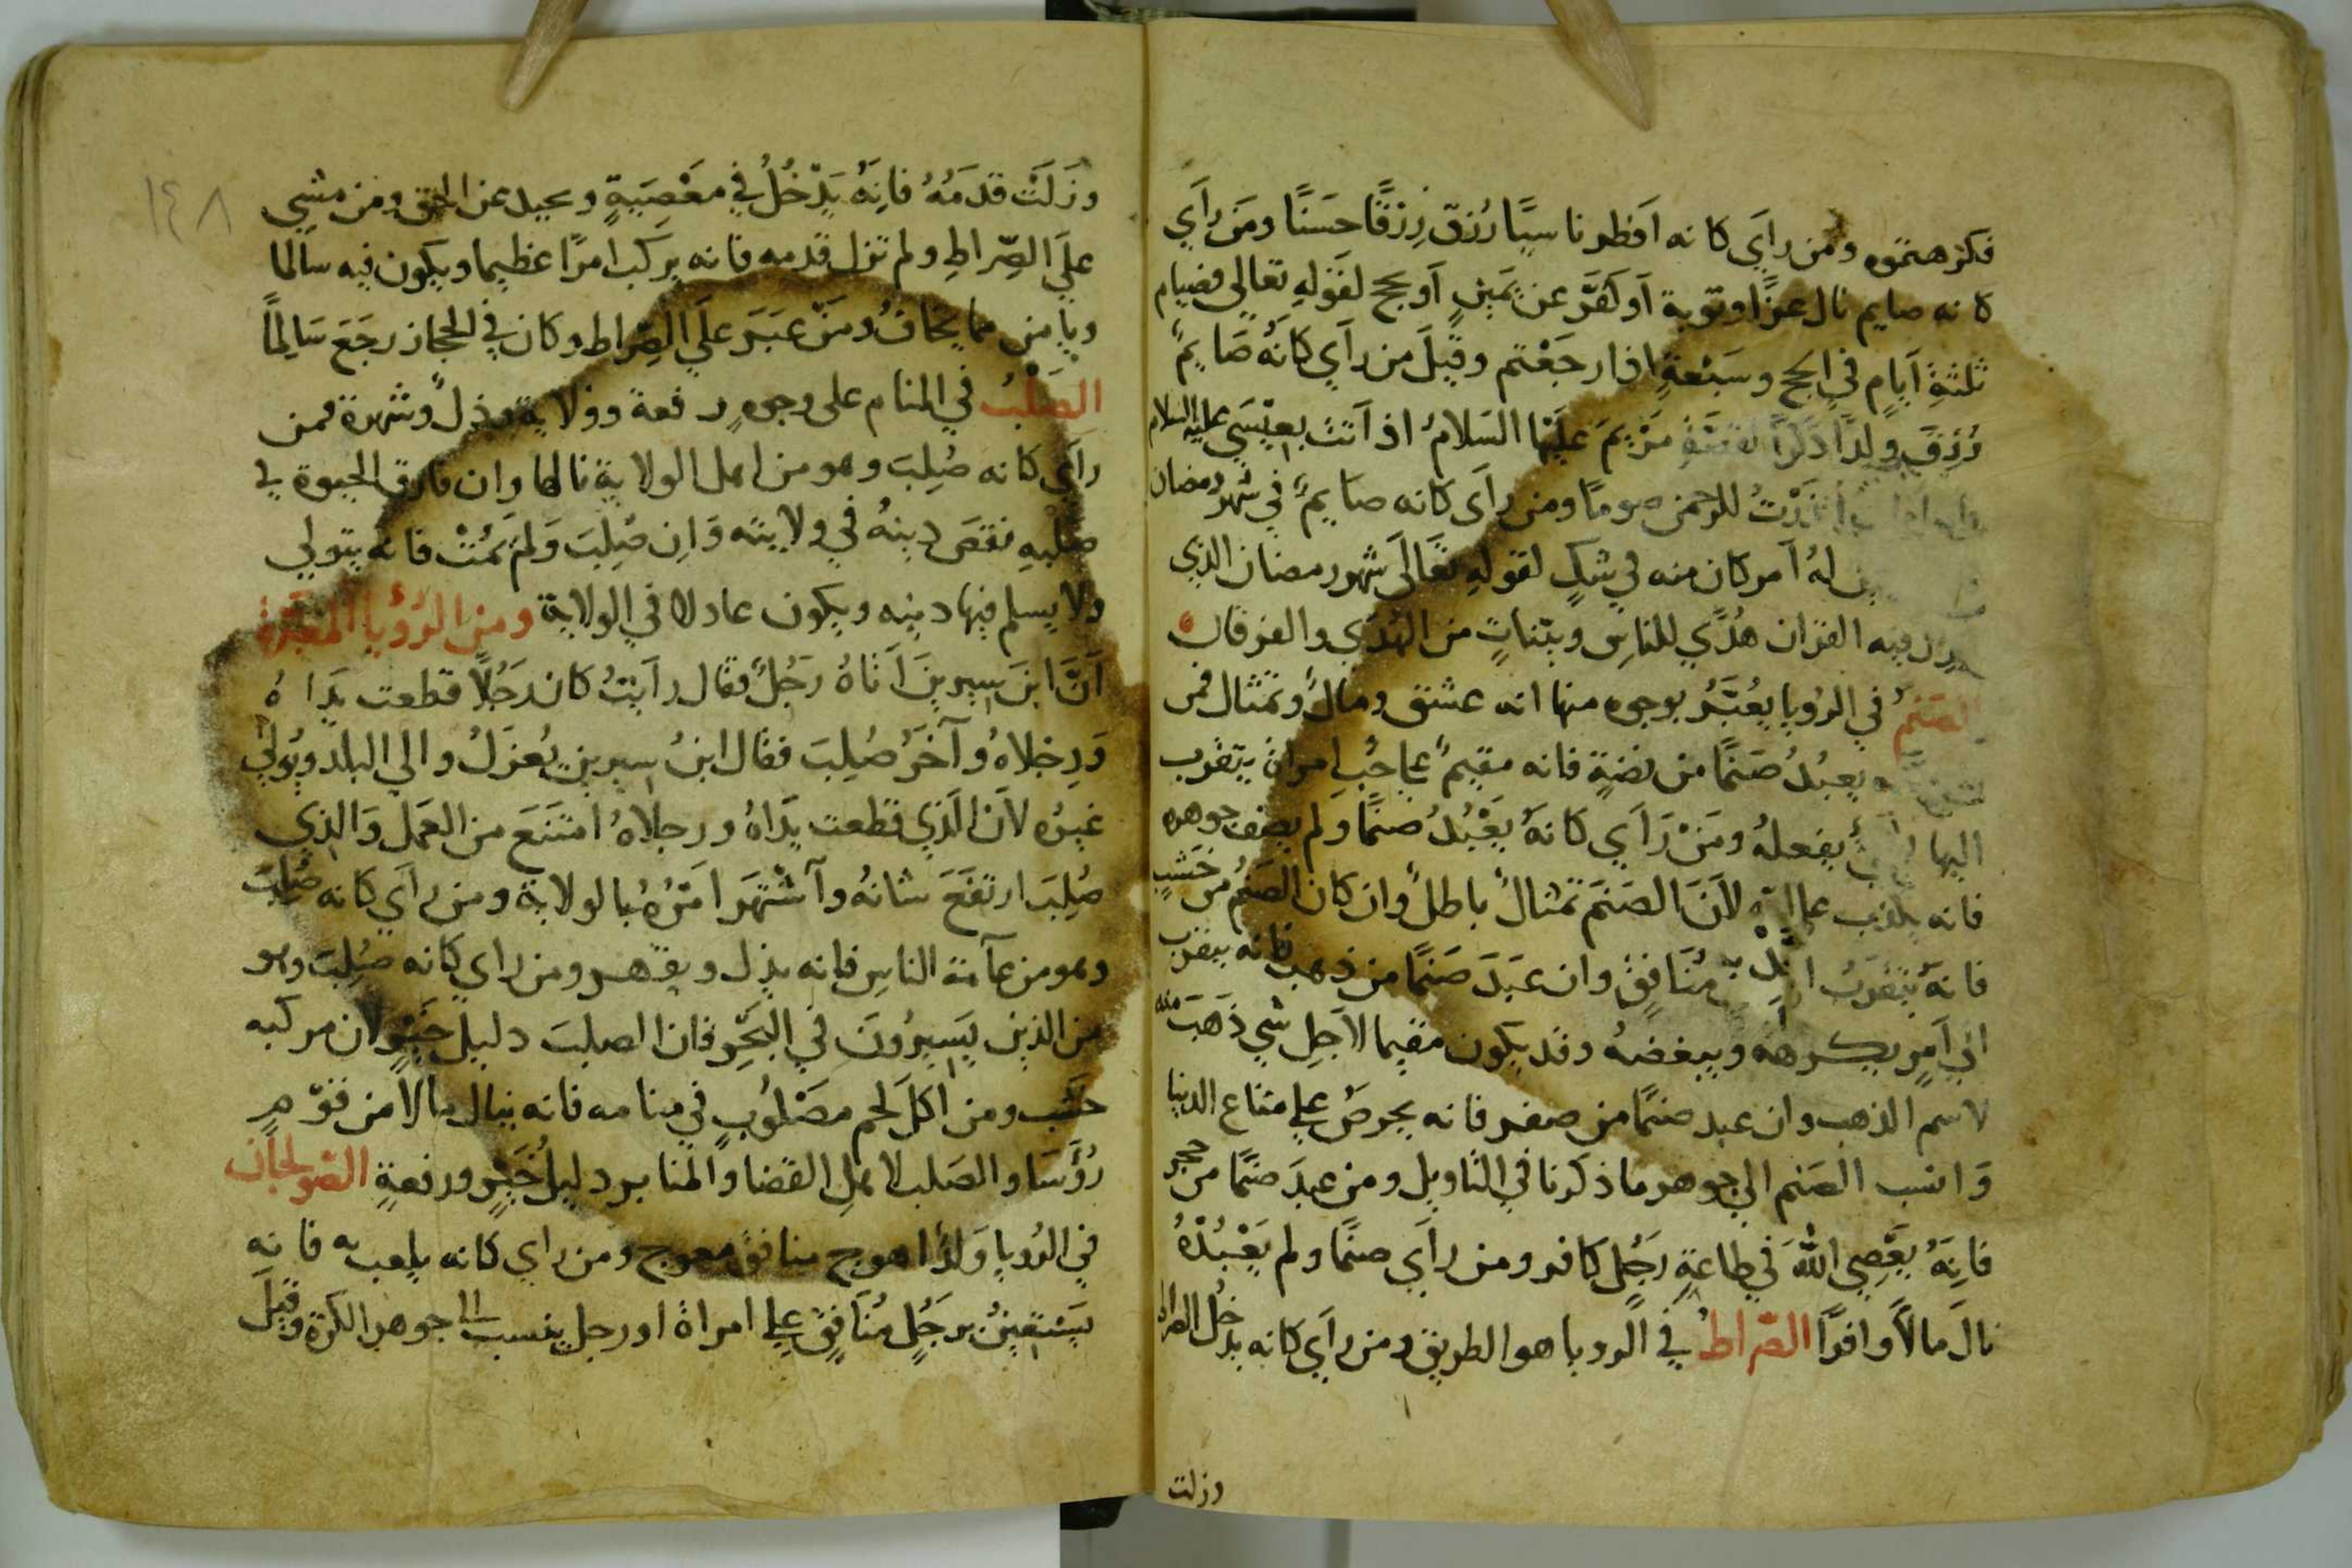 فكرهتموه ومن رَأَي كانه اَفطر ناسيًا رُزق رِزْقًا حسَنًا ومَن رَأَي
كانه صايم نال عزًا وتوبة اَو كفَّر عن يَمينٍ اَو يحج لقَولهِ تعَالي فصيام
ثلثةِ اَيامٍ في الحج وسَبْعةٍ اذا رجَعْتم وقيلَ من رآي كانهُ صَايمٌ
رُزقَ ولدًا ذكَرًا لقصّةِ مَرْيمَ عليَها السَلامُ اذ اَتت بعيْسَي عليه السلام
نَذَرْتُ للرحمن صومًا ومن رآى كانه صايمٌ في شهر رمضان
له اَمر كان منه في شكٍ لقولهِ تعَالَى شهر رمضان الذي
فيه القرَان هُدًي للناسِ وبيّناتٍ من الهُدَي والفرقان
الصَنمُ في الرُويا يُعبَّرُ بوجوه منها انه عشق ومالٌ وتمثال فمن
يعبدُ صَنمًا من فضةٍ فانه مقيمٌ على حُبِ امراة يتقرب
اليها يفعلهُ ومَنْ رَآَي كانهُ يَعْبُدُ صنمًا ولم يصف جوهره
فانه لاَنَ الصنَم تمثالٌ باطلٌ وان كان الصَنمُ من خَشبٍ
فانهُ يَتقَربُ مُنَافِقٍ وان عبَدَ صَنمًا من ذهب فانه يتقرب
الي اَمرٍ يكرهه ويبغضهُ وقد يكون مقيما لاَجلِ شي ذَهَبَ منه
لاسم الذهب وان عبد صنمًا من صفر فانه يحرصُ على متاع الدنيا
وَانسب الصَنم الي جوهر ما ذكرنا في التاويل ومن عبدَ صنمًا من حجر
فانهُ يعَصِي اللهَ في طاعةِ رَجُلٍ كافر ومن رآَي صنمًا ولم يَعْبُدْهُ
نالَ مالاً وافرًا الصّراطُ في الرويا هو الطريق ومن راَي كانه يدخُل الصراط
وزلت
١٤٨
وزَلَّتْ قدَمَهُ فانهُ يَدْخُلُ في معَصيَةٍ ويحيد عن الحق ومن مشي
علَي الصِّراطِ ولم تزل قدمه فانه يركب امرًا عظيما ويكون فيه سالما
ويامن مما يخافُ ومَنْ عبَرَ علَي الصّراط وكان في الحجاز رجَعَ سَالِمًا
الصَلْبُ في المنام على وجوهٍ رفعة وولاية وذلٌ وشهرة فمن
راَي كانه صُلِبَ وهو من اهل الولاية نالها وان فارق الحيوة في
صَلْبهِ نقصَ دينهُ في ولايته وَاِن صُلِبَ وَلمَ يَمُتْ فانه يتولي
ولا يسلم فيها دينه ويكون عادلا في الولاية ومن الرُؤيا المعبَّرة
اَنَّ ابنَ سيرينَ اَتاهُ رَجُلٌ فقال راَيتُ كان رَجُلًا قطعت يَداهُ
وَرِجْلاهُ وآخَرُ صُلِبَ فقال ابنُ سيرين يُعزَلُ والي البلد ويُولي
غيرُه لاَن الَذي قطعت يَداهُ ورجلاهُ امتنَعَ من العمَل وَالذي
صُلِبَ ارتفَعَ شانهُ وآشْتهَر امَرُهُ بالولاية ومن راَي كانه صُلِبَ
وهو من عآمة الناسِ فانه يذل ويقهر ومن راي كانه صُلِبَ وهو
من الذين يَسيرُونَ في البَحِّرِ فان الصلبَ دليل خَيْرٍ لان مركبه
خشَب ومن اكلَ لحم مصَلُوبٍ في منامه فانه ينال مالا من قوْمٍ
رُؤسَا والصَلب لاهلِ القضا والمنابر دليل خَيْرٍ ورفعةٍ الصّولجان
في الرُويا وَلدٌ اهوج منافقٌ معوج ومن راي كانه يلعب به فانه
يَستعِينُ برَجُلٍ مُنَافِقٍ على امراة او رجل ينسب الى جوهر الكرة وقيلَ